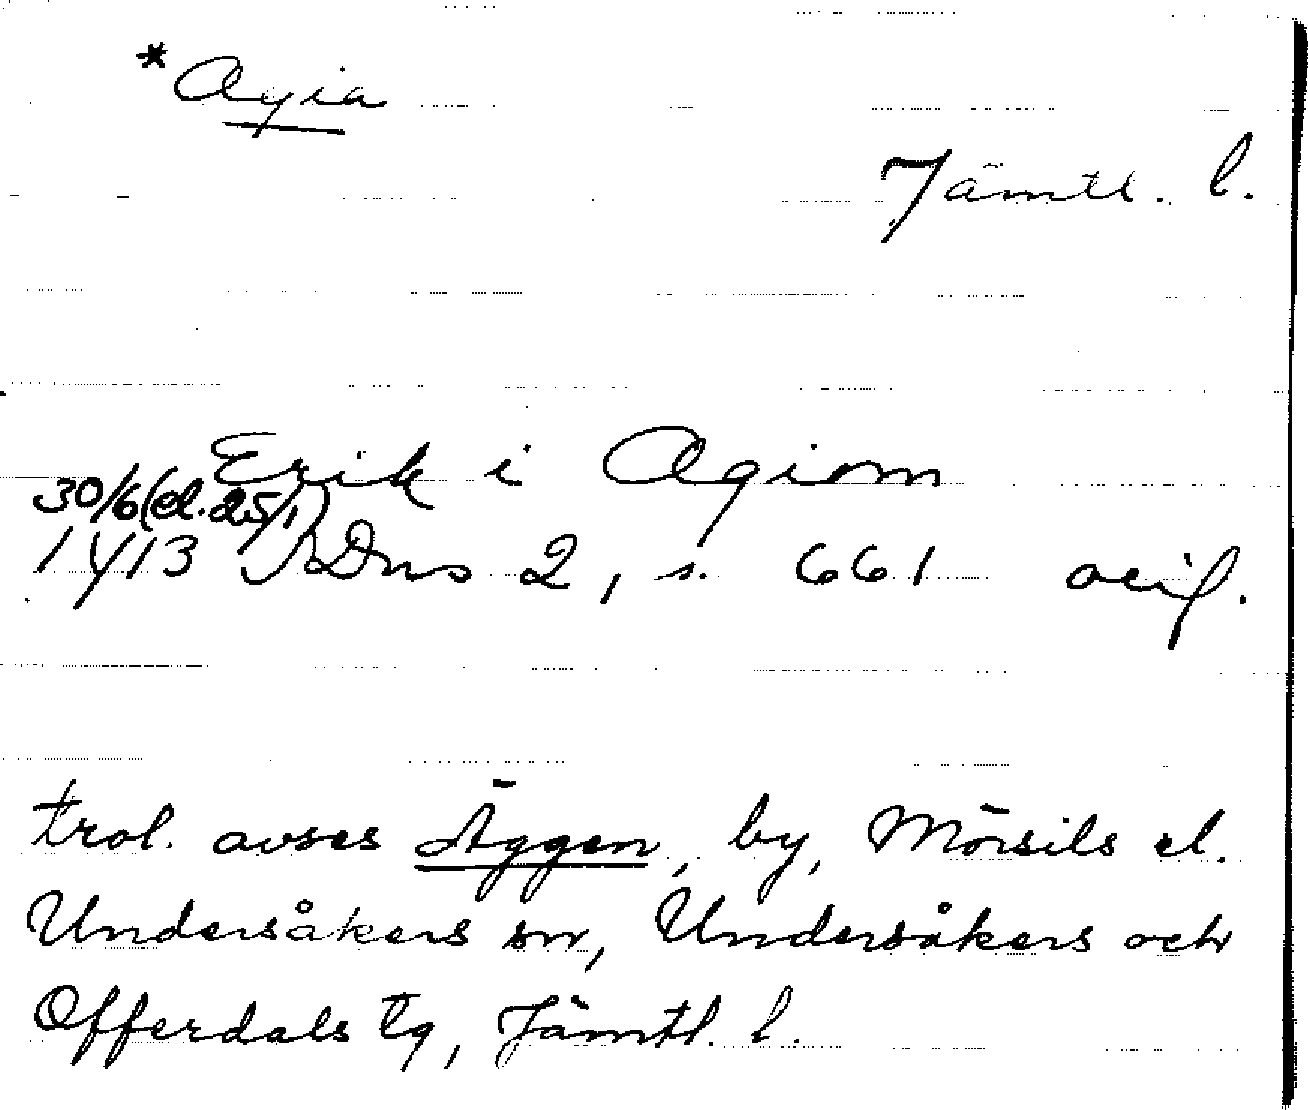 *Agia
Jämtl. l.
Erik i Agiom
30/6 (el. 25/1)
1413 SDns 2, s. 661 avs.
trol. avses Äggen, by, Mörsils el.
Undersåkers sn, Undersåkers och
Offerdals tg, Jämtl. l.